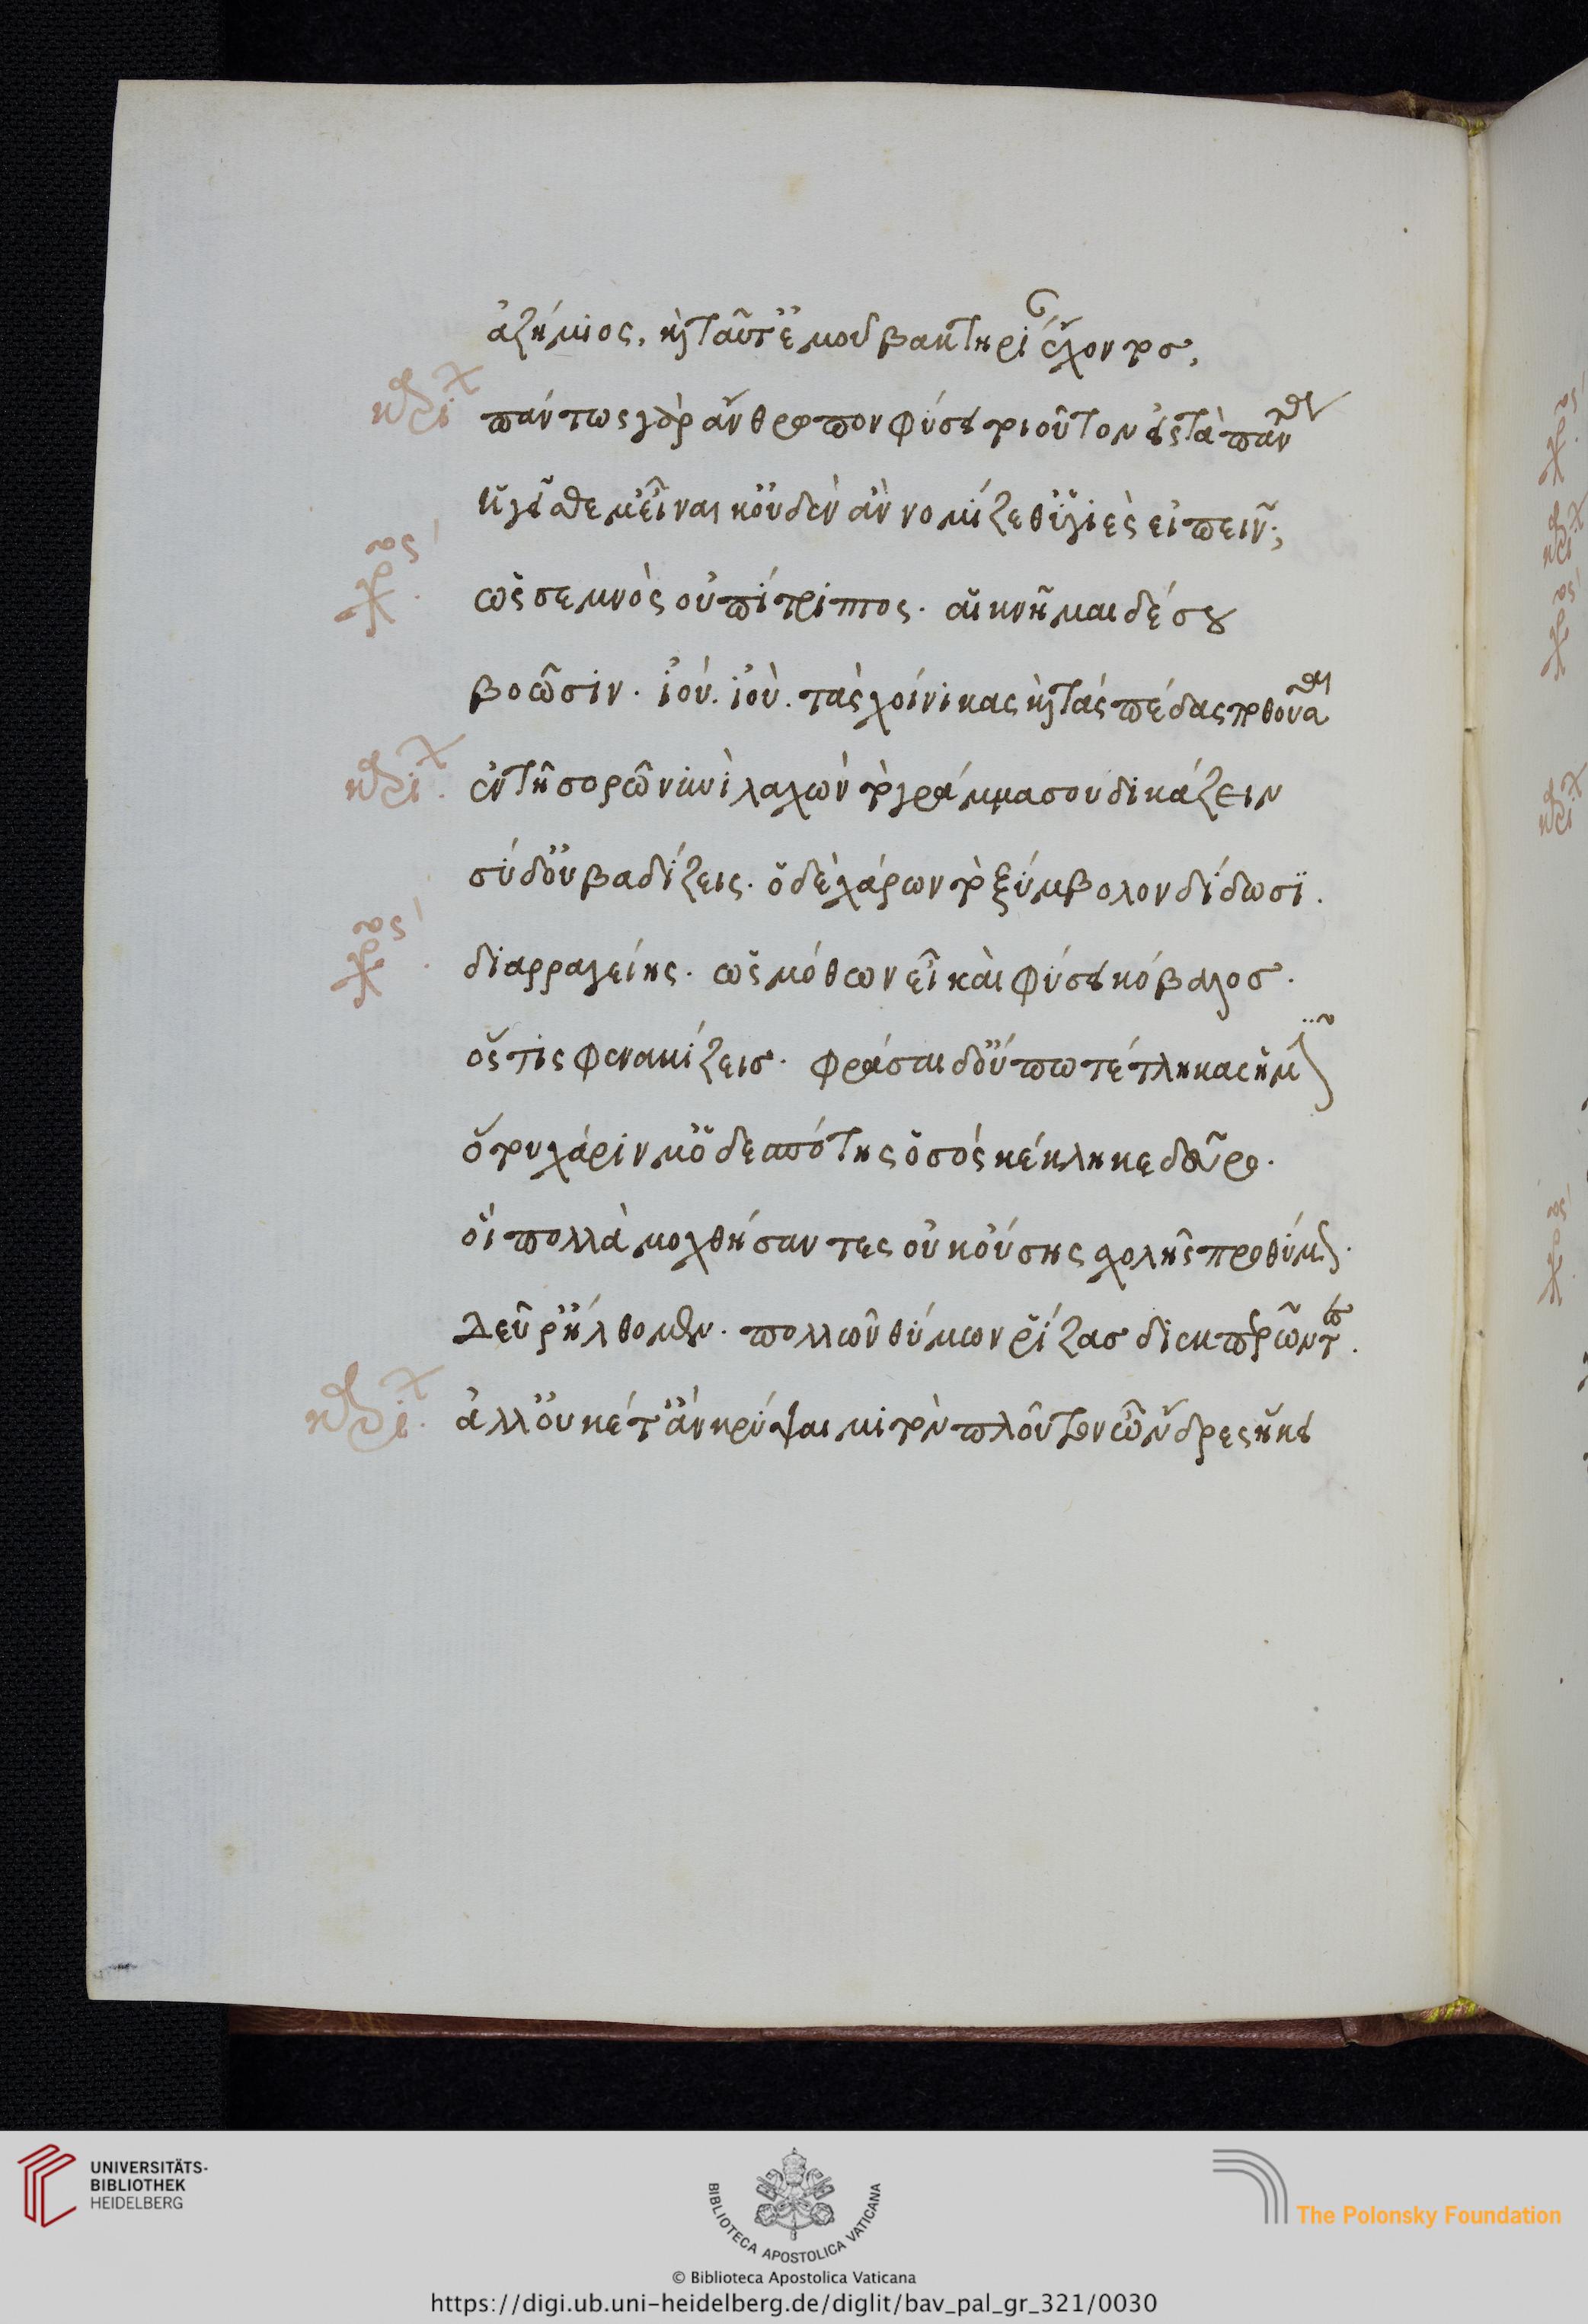 ἀζήμιος, καὶ ταῦτ' ἐμοῦ βακτηρίαν ἔχοντος,
κα. πάντως γὰρ ἄνθρωπον φύσει τοιοῦτον εἰς τὰ πάντα
ἡγεῖσθέ μ' εἶναι κοὐδὲν ἂν νομίζεθ' ὑγιὲς εἰπεῖν;
χορὸς ὡς σεμνὸς οὑπίτριπτος. αἱ κνῆμαι δέ σου
βοῶσιν. ἰού. ἰού. τὰς χοίνικας καὶ τὰς πέδας ποθοῦσαι
κα. ἐν τῇ σορῷ νυνὶ λαχὼν τὸ γράμμα σου δικάζειν
σὺ δ' οὐ βαδίζεις. ὁ δὲ χάρων τὸ ξύμβολον δίδωσι.
χορὸς διαρραγείης. ὡς μόθων εἶ καὶ φύσει κόβαλος.
ὅστις φενακίζεις. φράσαι δ' οὔπω τέτληκας ἡμῖν
ὅτου χάριν μ' ὁ δεσπότης ὁ σὸς κέκληκε δεῦρο.
οἳ πολλὰ μοχθήσαντες οὐκ οὔσης σχολῆς προθύμως.
δεῦρ' ἤλθομεν. πολλῶν θύμων ῥίζας διεκπερῶντες.
κα. ἀλλ' οὐκέτ' ἂν κρύψαιμι τὸν πλοῦτον ὦνδρες ἥκει
UNIVERSITÄTS-
BIBLIOTHEK
HEIDELBERG
BIBLIOTECA APOSTOLICA VATICANA
The Polonsky Foundation
© Biblioteca Apostolica Vaticana
https://digi.ub.uni-heidelberg.de/diglit/bav_pal_gr_321/0030